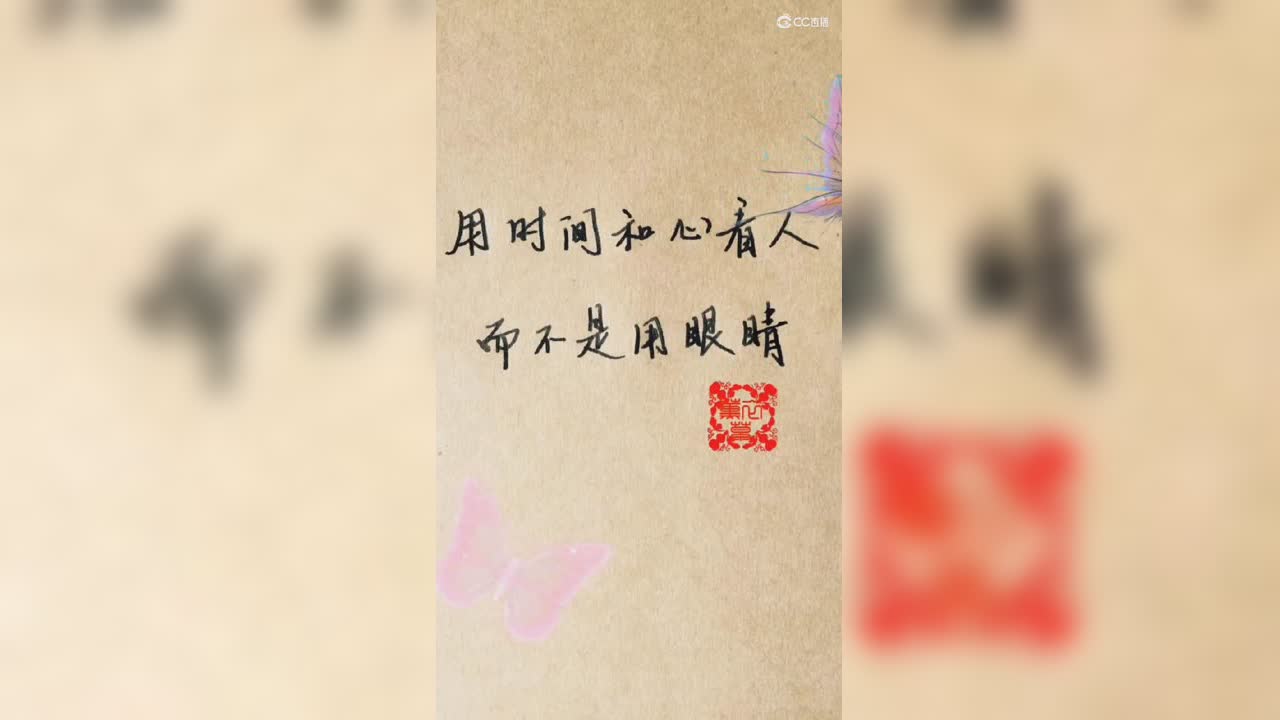 CC直播
用时间和心看人
而不是用眼睛